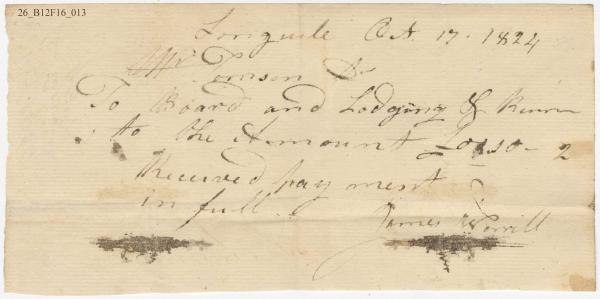 26_B12F16_013
Longuile Oct. 17. 1824
Mr Tomson Dr
To Board and Lodging &
to the Amount
Received payment
in full.
James Worrill